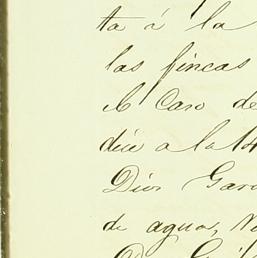 ta á la
las fincas
el Caso de
dió a la
Dios Garc
de agua,